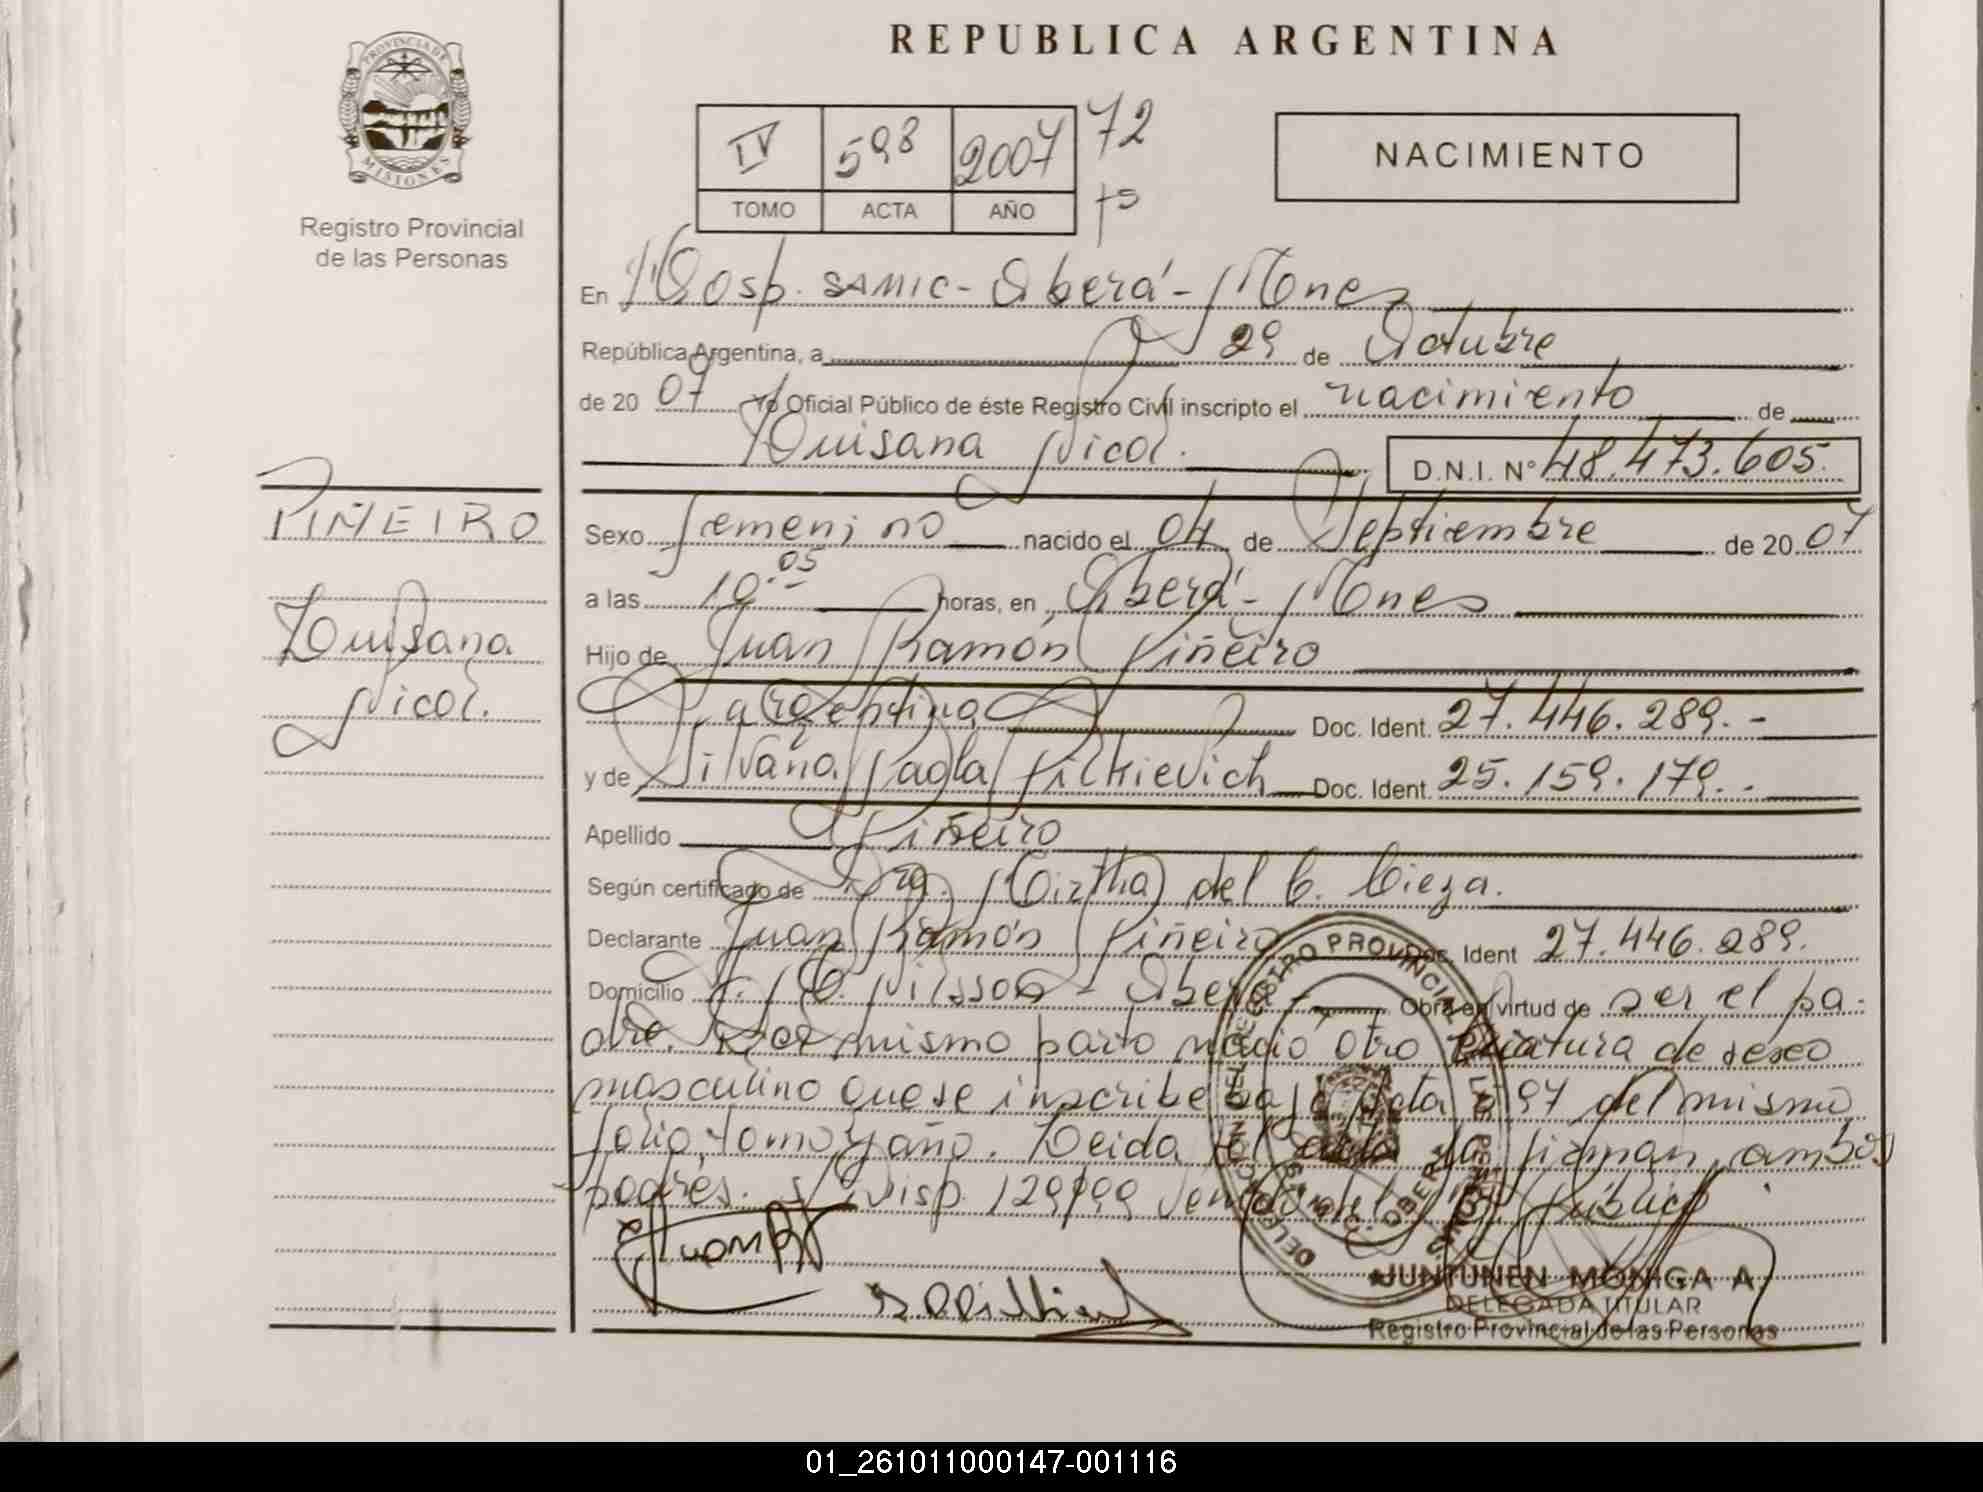 REPUBLICA ARGENTINA
PROVINCIA DE
MISIONES
Registro Provincial
de las Personas
IV 598 2007 72
TOMO ACTA AÑO fs
NACIMIENTO
En Hosp. SAMIC - Oberá - Mnes
República Argentina, a 29 de Octubre
de 20 07 Yo Oficial Público de éste Registro Civil inscripto el nacimiento de
Luisana Nicol.
D.N.I. Nº 48.473.605.
PIÑEIRO
Luisana
Nicol.
Sexo femenino nacido el 04 de Septiembre de 20 07
a las 10.05 horas, en Oberá - Mnes
Hijo de Juan Ramón Piñeiro
argentina Doc. Ident. 27.446.289.-
y de Silvana Paola Doc. Ident. 25.159.179.-
Apellido Piñeiro
Según certificado de Mirtha del C. Cieza.
Declarante Juan Ramón Piñeiro Doc. Ident 27.446.289.
Domicilio Nilsson - Oberá - Obra en virtud de ser el pa-
dre. Del mismo parto nació otro criatura de sexo
masculino que se inscribe bajo Acta 597 del mismo
folio, tomo y año. Leida el acta la firman ambos
padres. s/ Disp. 129/99 Público
JUNTUNEN MONICA A.
DELEGADA TITULAR
Registro Provincial de las Personas
01_261011000147-001116